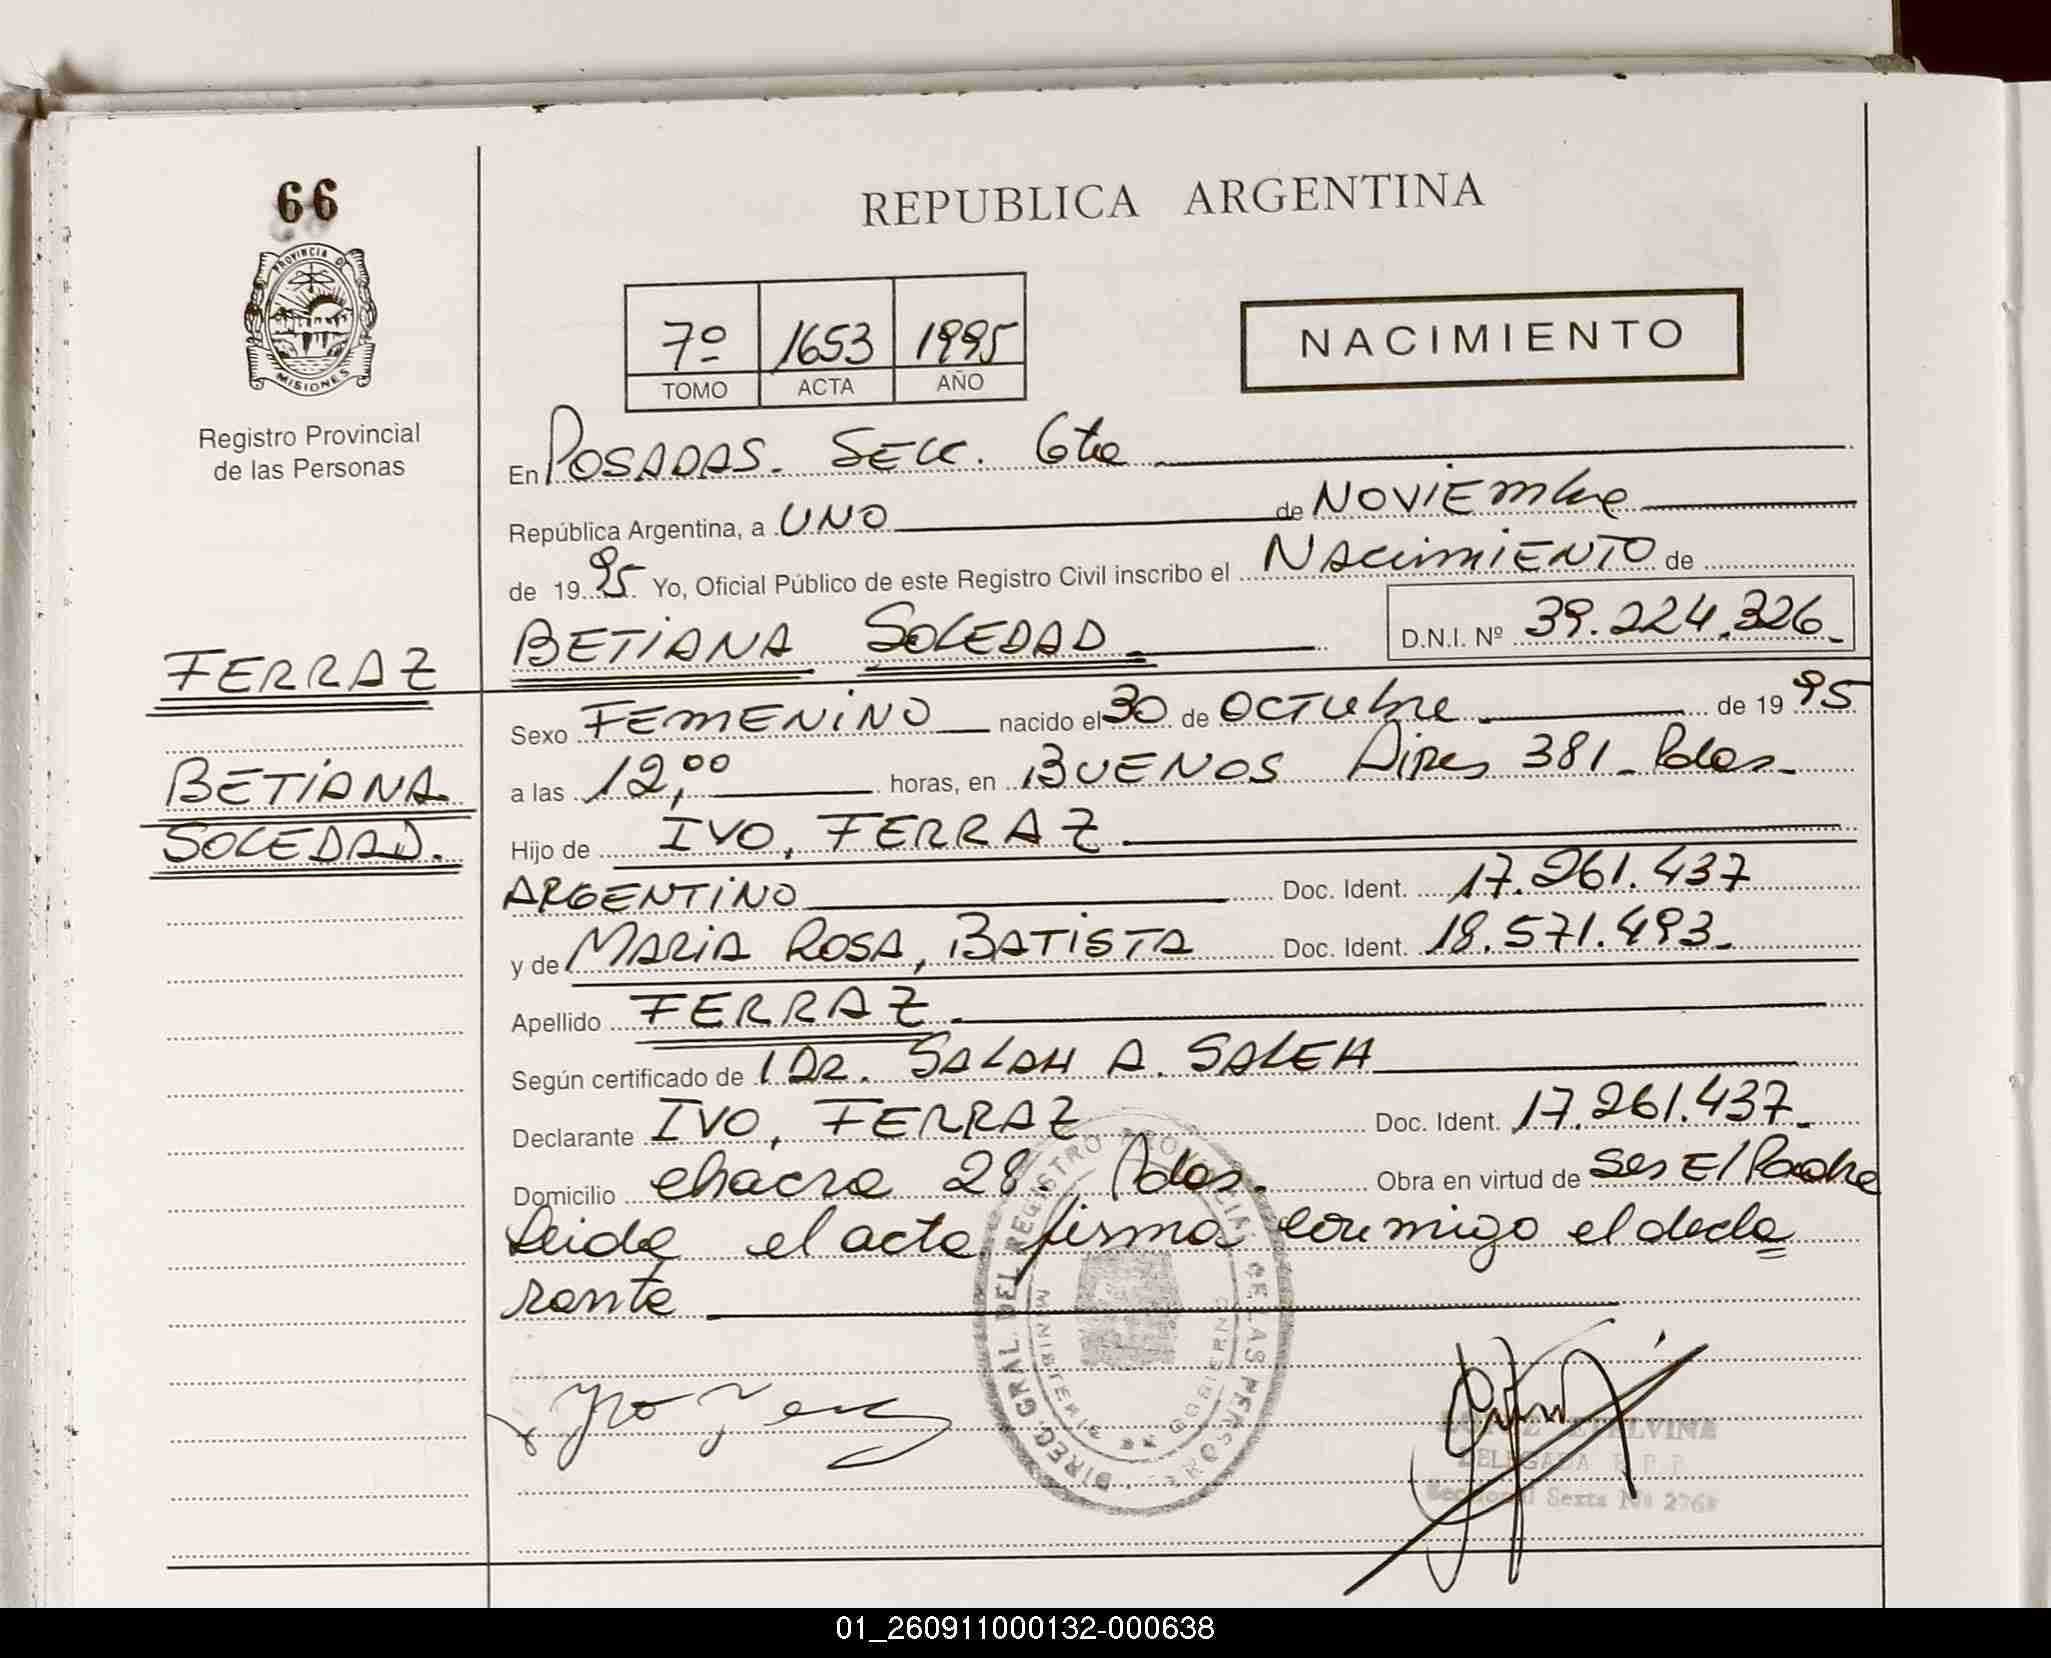 66
PROVINCIA D
MISIONES
Registro Provincial
de las Personas
REPUBLICA ARGENTINA
7º 1653 1995
TOMO ACTA AÑO
NACIMIENTO
En POSADAS. SECC. 6ta
República Argentina, a UNO de NOVIEmbre
de 1995 Yo, Oficial Público de este Registro Civil inscribo el NAcimiENTO de
BETIANA SOLEDAD D.N.I. Nº 39.224.326
FERRAZ
Sexo FEMENINO nacido el 30 de OCTUbre de 1995
BETIANA
a las 12,00 horas, en BUENOS Aires 381 - Pdas
SOLEDAD.
Hijo de IVO, FERRAZ
ARGENTINO Doc. Ident. 17.261.437
y de MARIA ROSA, BATISTA Doc. Ident. 18.571.493
Apellido FERRAZ
Según certificado de DR. SALAH A. SALEH
Declarante IVO, FERRAZ Doc. Ident. 17.261.437
Domicilio chacra 28. Pdas. Obra en virtud de ser El Padre
Leida el acta firma conmigo el decla
rante
DIREC. GRAL. DEL REGISTRO PROVINCIAL DE LAS PERSONAS
MINISTERIO GOBIERNO
DELEGADA R.P.P.
Seccional Sexta Nº 2768
01_260911000132-000638